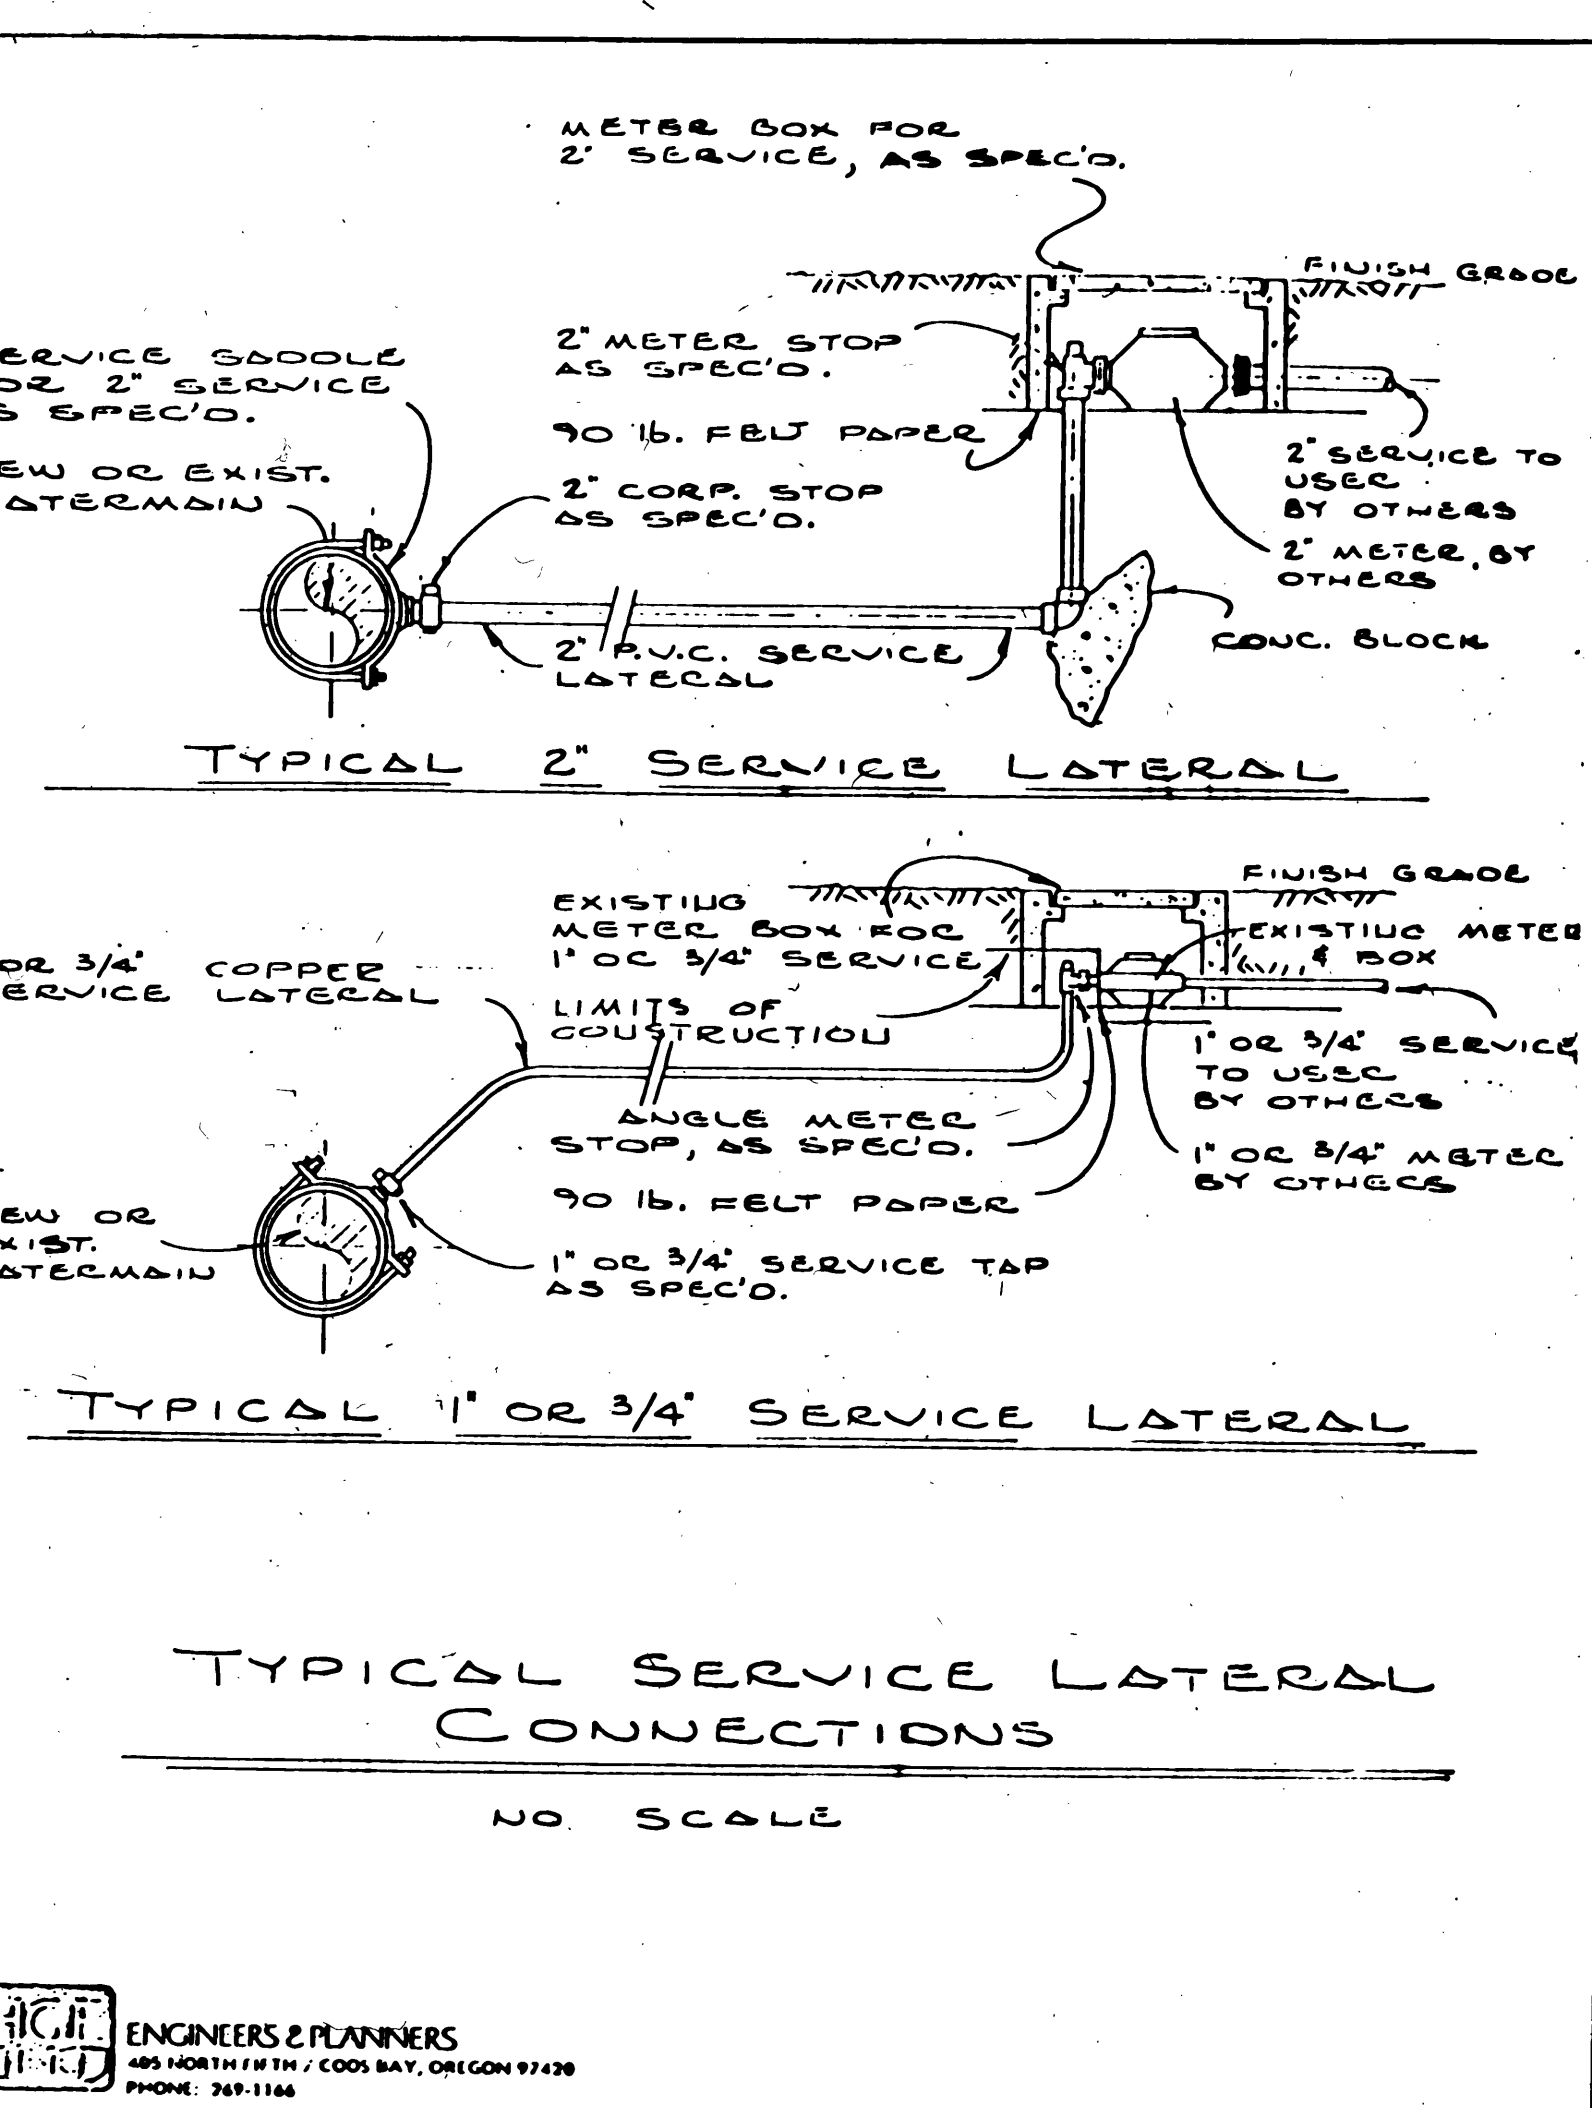 METER BOX FOR
2" SERVICE, AS SPEC'D.
FINISH GRADE
2" METER STOP
AS SPEC'D.
ERVICE SADDLE
OR 2" SERVICE
S SPEC'D.
90 lb. FELT PAPER
EW OR EXIST.
ATERMAIN
2" CORP. STOP
AS SPEC'D.
2" SERVICE TO
USER
BY OTHERS
2" METER, BY
OTHERS
CONC. BLOCK
2" P.V.C. SERVICE
LATERAL
TYPICAL 2" SERVICE LATERAL
FINISH GRADE
EXISTING
METER BOX FOR
1" OR 3/4" SERVICE
EXISTING METER
& BOX
OR 3/4" COPPER
ERVICE LATERAL
LIMITS OF
CONSTRUCTION
1" OR 3/4" SERVICE
TO USER
BY OTHERS
ANGLE METER
STOP, AS SPEC'D.
1" OR 3/4" METER
BY OTHERS
90 lb. FELT PAPER
EW OR
XIST.
ATERMAIN
1" OR 3/4" SERVICE TAP
AS SPEC'D.
TYPICAL 1" OR 3/4" SERVICE LATERAL
TYPICAL SERVICE LATERAL
CONNECTIONS
NO SCALE
ENGINEERS & PLANNERS
405 NORTH FIFTH / COOS BAY, OREGON 97420
PHONE: 269-1166